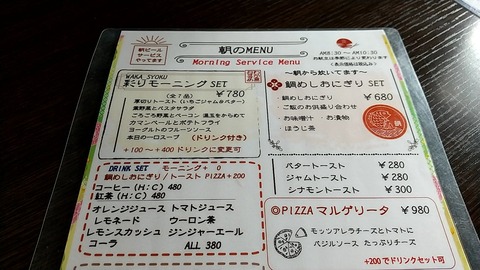 朝ビール
サービス
やってます
朝のMENU
Morning Service Menu
AM8:30 ~ AM10:30
(表示価格は税込み)
WAKA SYOKU
彩りモーニング SET
(全7品) ¥780
厚切りトースト(いちごジャム&バター)
葉野菜とパスタサラダ
ごろごろ野菜とベーコン 温玉をからめて
カマンベールとポテトフライ
ヨーグルトのフルーツソース
本日の一口スープ (ドリンク付き)
+100~+400ドリンクに変更可
~朝から炊いてます~
鯛めしおにぎり SET
鯛めしおにぎり ¥680
ご飯のお供盛り合わせ
・お味噌汁 ・お漬物
・ほうじ茶
DRINK SET モーニング+0
鯛めしおにぎり/トースト PIZZA+200
コーヒー(H:C)480
紅茶(H:C)480
オレンジジュース トマトジュース
レモネード ウーロン茶
レモンスカッシュ ジンジャーエール
コーラ ALL 380
バタートースト ¥280
ジャムトースト ¥280
シナモントースト ¥300
◎PIZZAマルゲリータ ¥980
モッツアレラチーズとトマトに
バジルソース たっぷりチーズ
+200でドリンクセット可